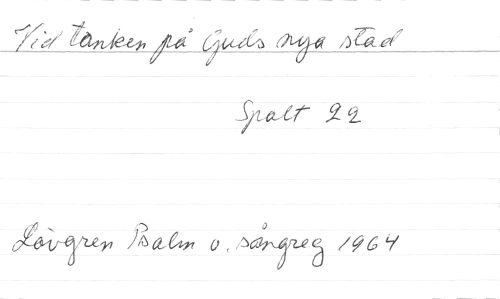 Vid tanken på Guds nya stad
Spalt 22
Lövgren Psalm o. sångreg 1964